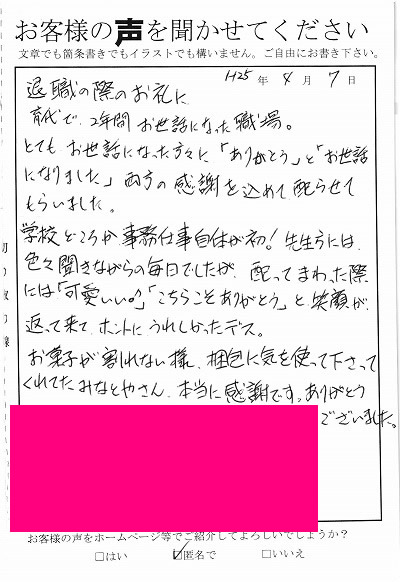 お客様の声を聞かせてください
文章でも箇条書きでもイラストでも構いません。ご自由にお書き下さい。
H25年 4月 7日
退職の際のお礼に
育代で、2年間 お世話になった職場。
とても お世話になった方々に「ありがとう」と「お世話
になりました」両方の感謝を込めて配らせて
もらいました。
学校どころか事務仕事自体が初！先生方には、
色々聞きながらの毎日でしたが、配ってまわった際
には「可愛いい。」「こちらこそありがとう」と笑顔が
返って来て、ホントにうれしかったデス。
お菓子が割れない様、梱包に気を使って下さって
くれてたみなとやさん、本当に感謝です。ありがとう
ございました。
お客様の声をホームページ等でご紹介してよろしいでしょうか？
□はい ☑匿名で □いいえ